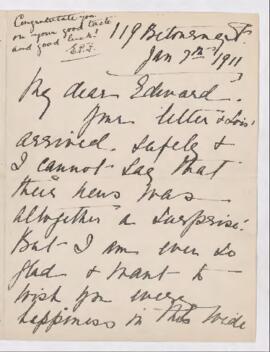 Congratulate you
on your good taste
and good luck!
E.P.F.
119
Jan 7th 1911
My dear Edward.
Your letter & Lois'
arrived safely &
I cannot say that
their news was
altogether a surprise!
But I am ever so
glad & want to
wish you every
happiness in this wide